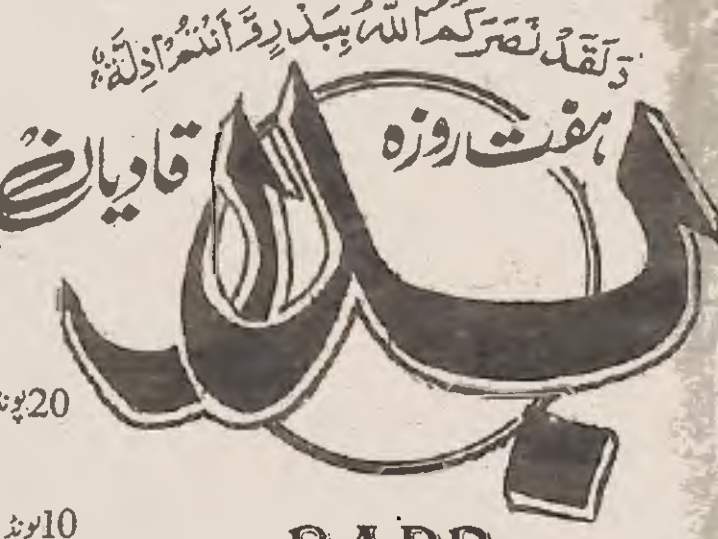 وَلَقَدْ نَصَرَكُمُ اللّٰهُ بِبَدْرٍ وَّاَنْتُمْ اَذِلَّةٌ
ہفت روزہ
قادیان
بدر
20 پونڈ
10 پونڈ
BADR